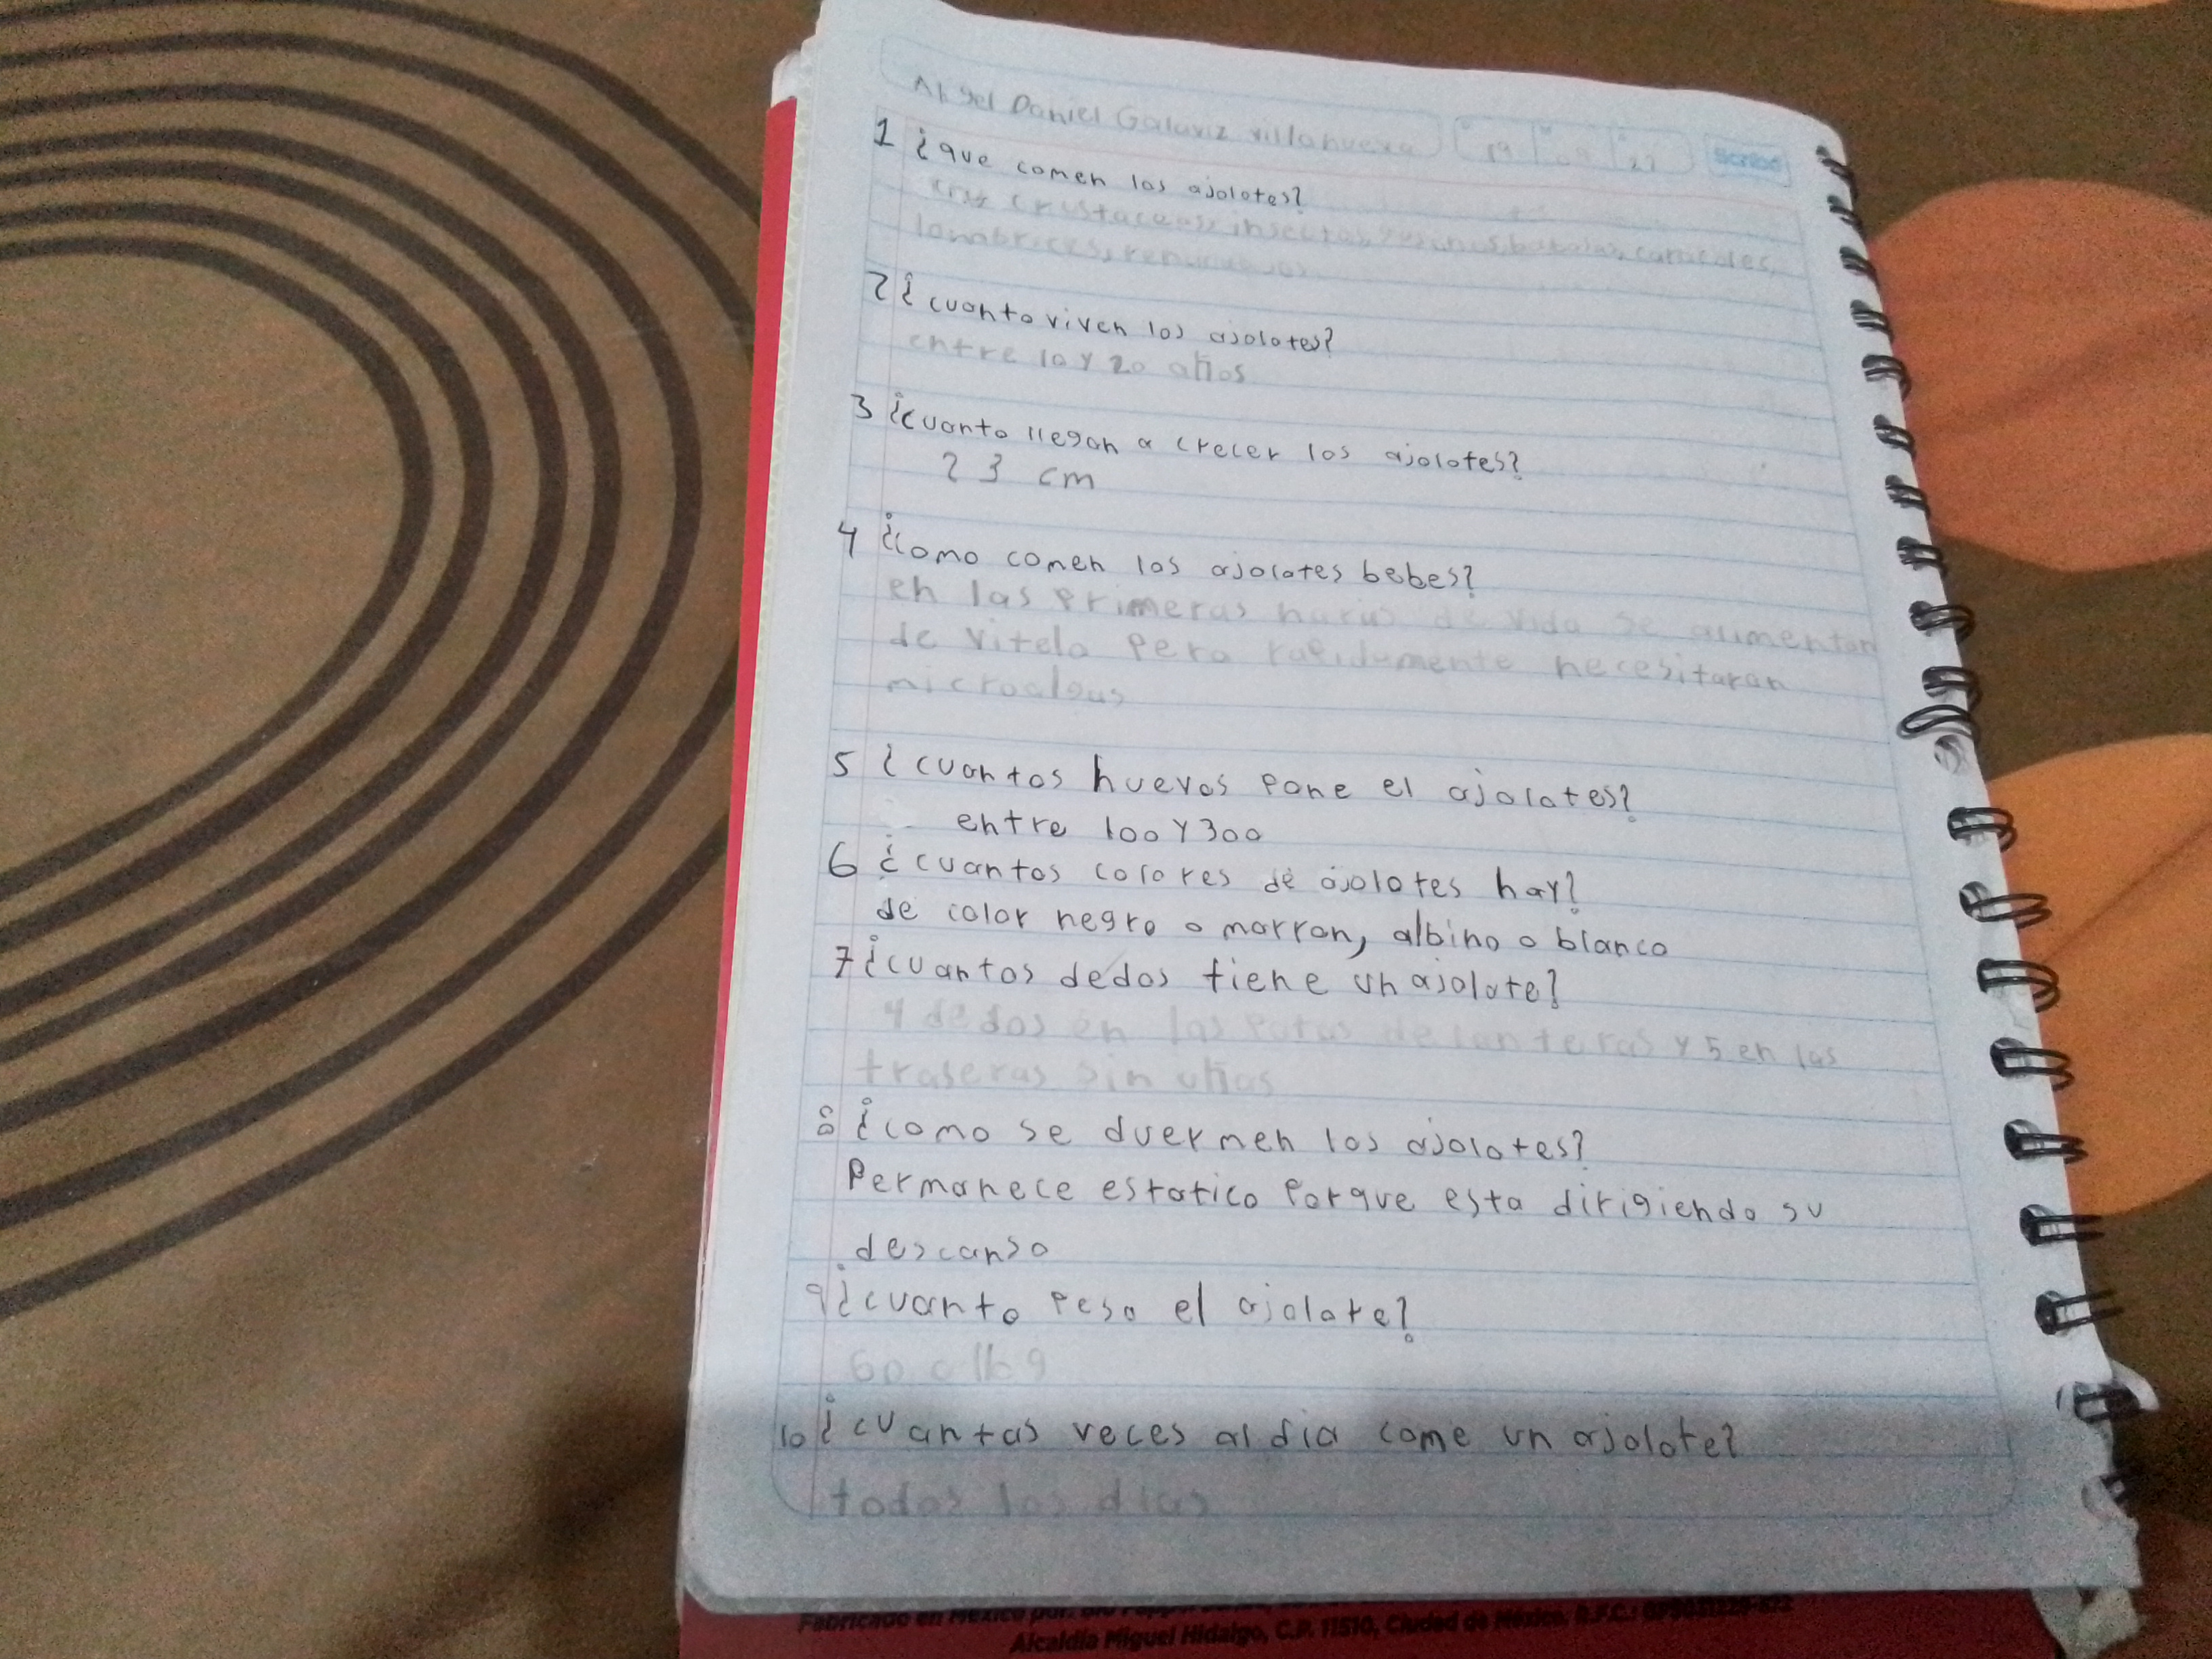 Angel Daniel Galaviz villanueva 19 9 Scribe
1 ¿que comen los ajolotes?
crustaceos, insectos, babosas, caracoles,
lombrices, renacuajos
2 ¿cuanto viven los ajolotes?
entre 10 y 20 años
3 ¿cuanto llegan a crecer los ajolotes?
23 cm
4 ¿como comen los ajolotes bebes?
en las primeras horas de vida se alimentan
de vitelo pero rapidamente necesitaran
microalgas
5 ¿cuantos huevos pone el ajolotes?
entre 100 y 300
6 ¿cuantos colores de ajolotes hay?
de color negro o marron, albino o blanco
7 ¿cuantos dedos tiene un ajolote?
4 dedos en las patas delanteras y 5 en las
traseras sin uñas
8 ¿como se duermen los ajolotes?
Permanece estatico porque esta dirigiendo su
descanso
9 ¿cuanto pesa el ajolote?
60 a 110 g
10 ¿cuantas veces al dia come un ajolote?
todos los dias
Fabricado en México por:
Alcaldía Miguel Hidalgo, C.P. 11510, Ciudad de México. R.F.C.: